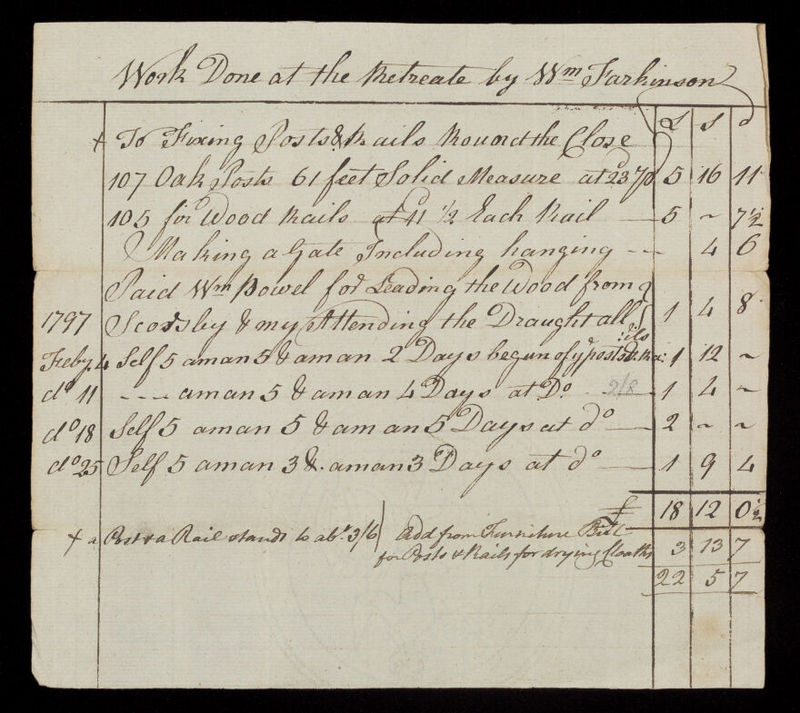 Work Done at the Retreate by Wm Parkinson
£ s d
+ To Fixing Posts & Rails Round the Close
107 Oak Posts 61 feet Solid Measure at 23d 5 16 11
105 fir Wood Rails at 11d 1/2 Each Rail — 5 ~ 7 1/2
Making a Gate Including hanging - - - 4 6
Paid Wm Powel for Leading the Wood from
1797 Scosby & my Attending the Draught all 1 4 8
Feby. 4 Self 5 a man 5 & a man 2 Days begun of ye posts & Rails 1 12 ~
do 11 - - - a man 5 & a man 4 Days at Do 2/8 1 4 ~
do 18 Self 5 a man 5 & a man 5 Days at do — 2 ~ ~
do 25 Self 5 a man 3 & a man 3 Days at do — 1 9 4
£ 18 12 0 1/2
+ a Post & a Rail stands to abt 3/6 Add from Furniture Bill
for Posts & Rails for drying cloaths 3 13 7
22 5 7